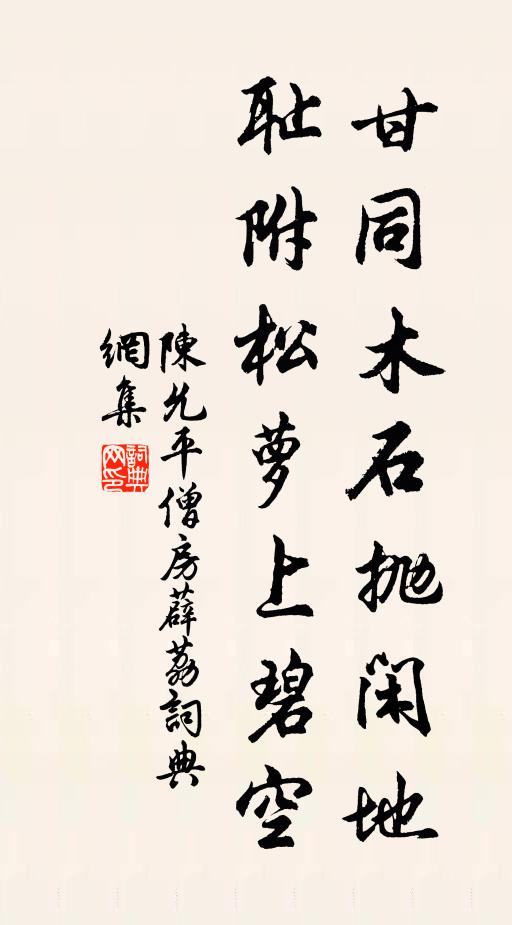 甘同木石抛闲地
耻附松萝上碧空
陳允平僧房薜荔詞典
網集
詞典
网印